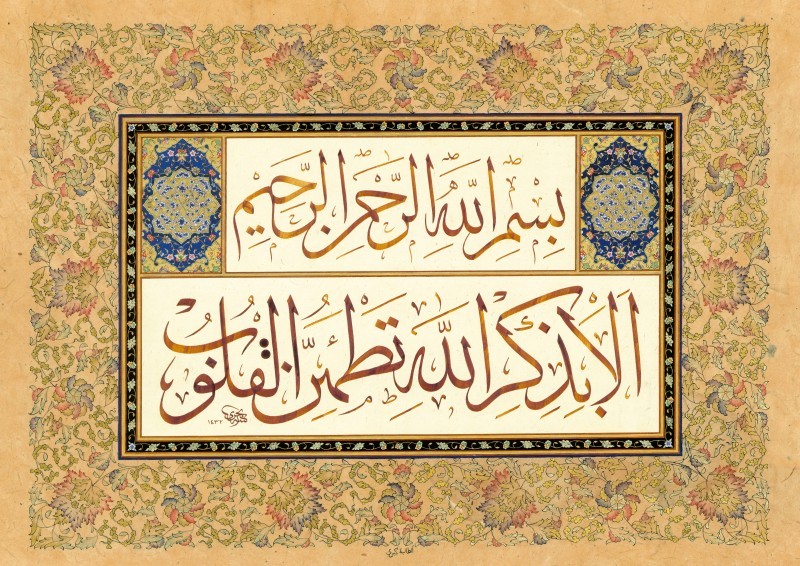 بِسْمِ اللهِ الرَّحْمٰنِ الرَّحِيمِ
اَلَا بِذِكْرِ اللهِ تَطْمَئِنُّ الْقُلُوبُ
١٤٣٢